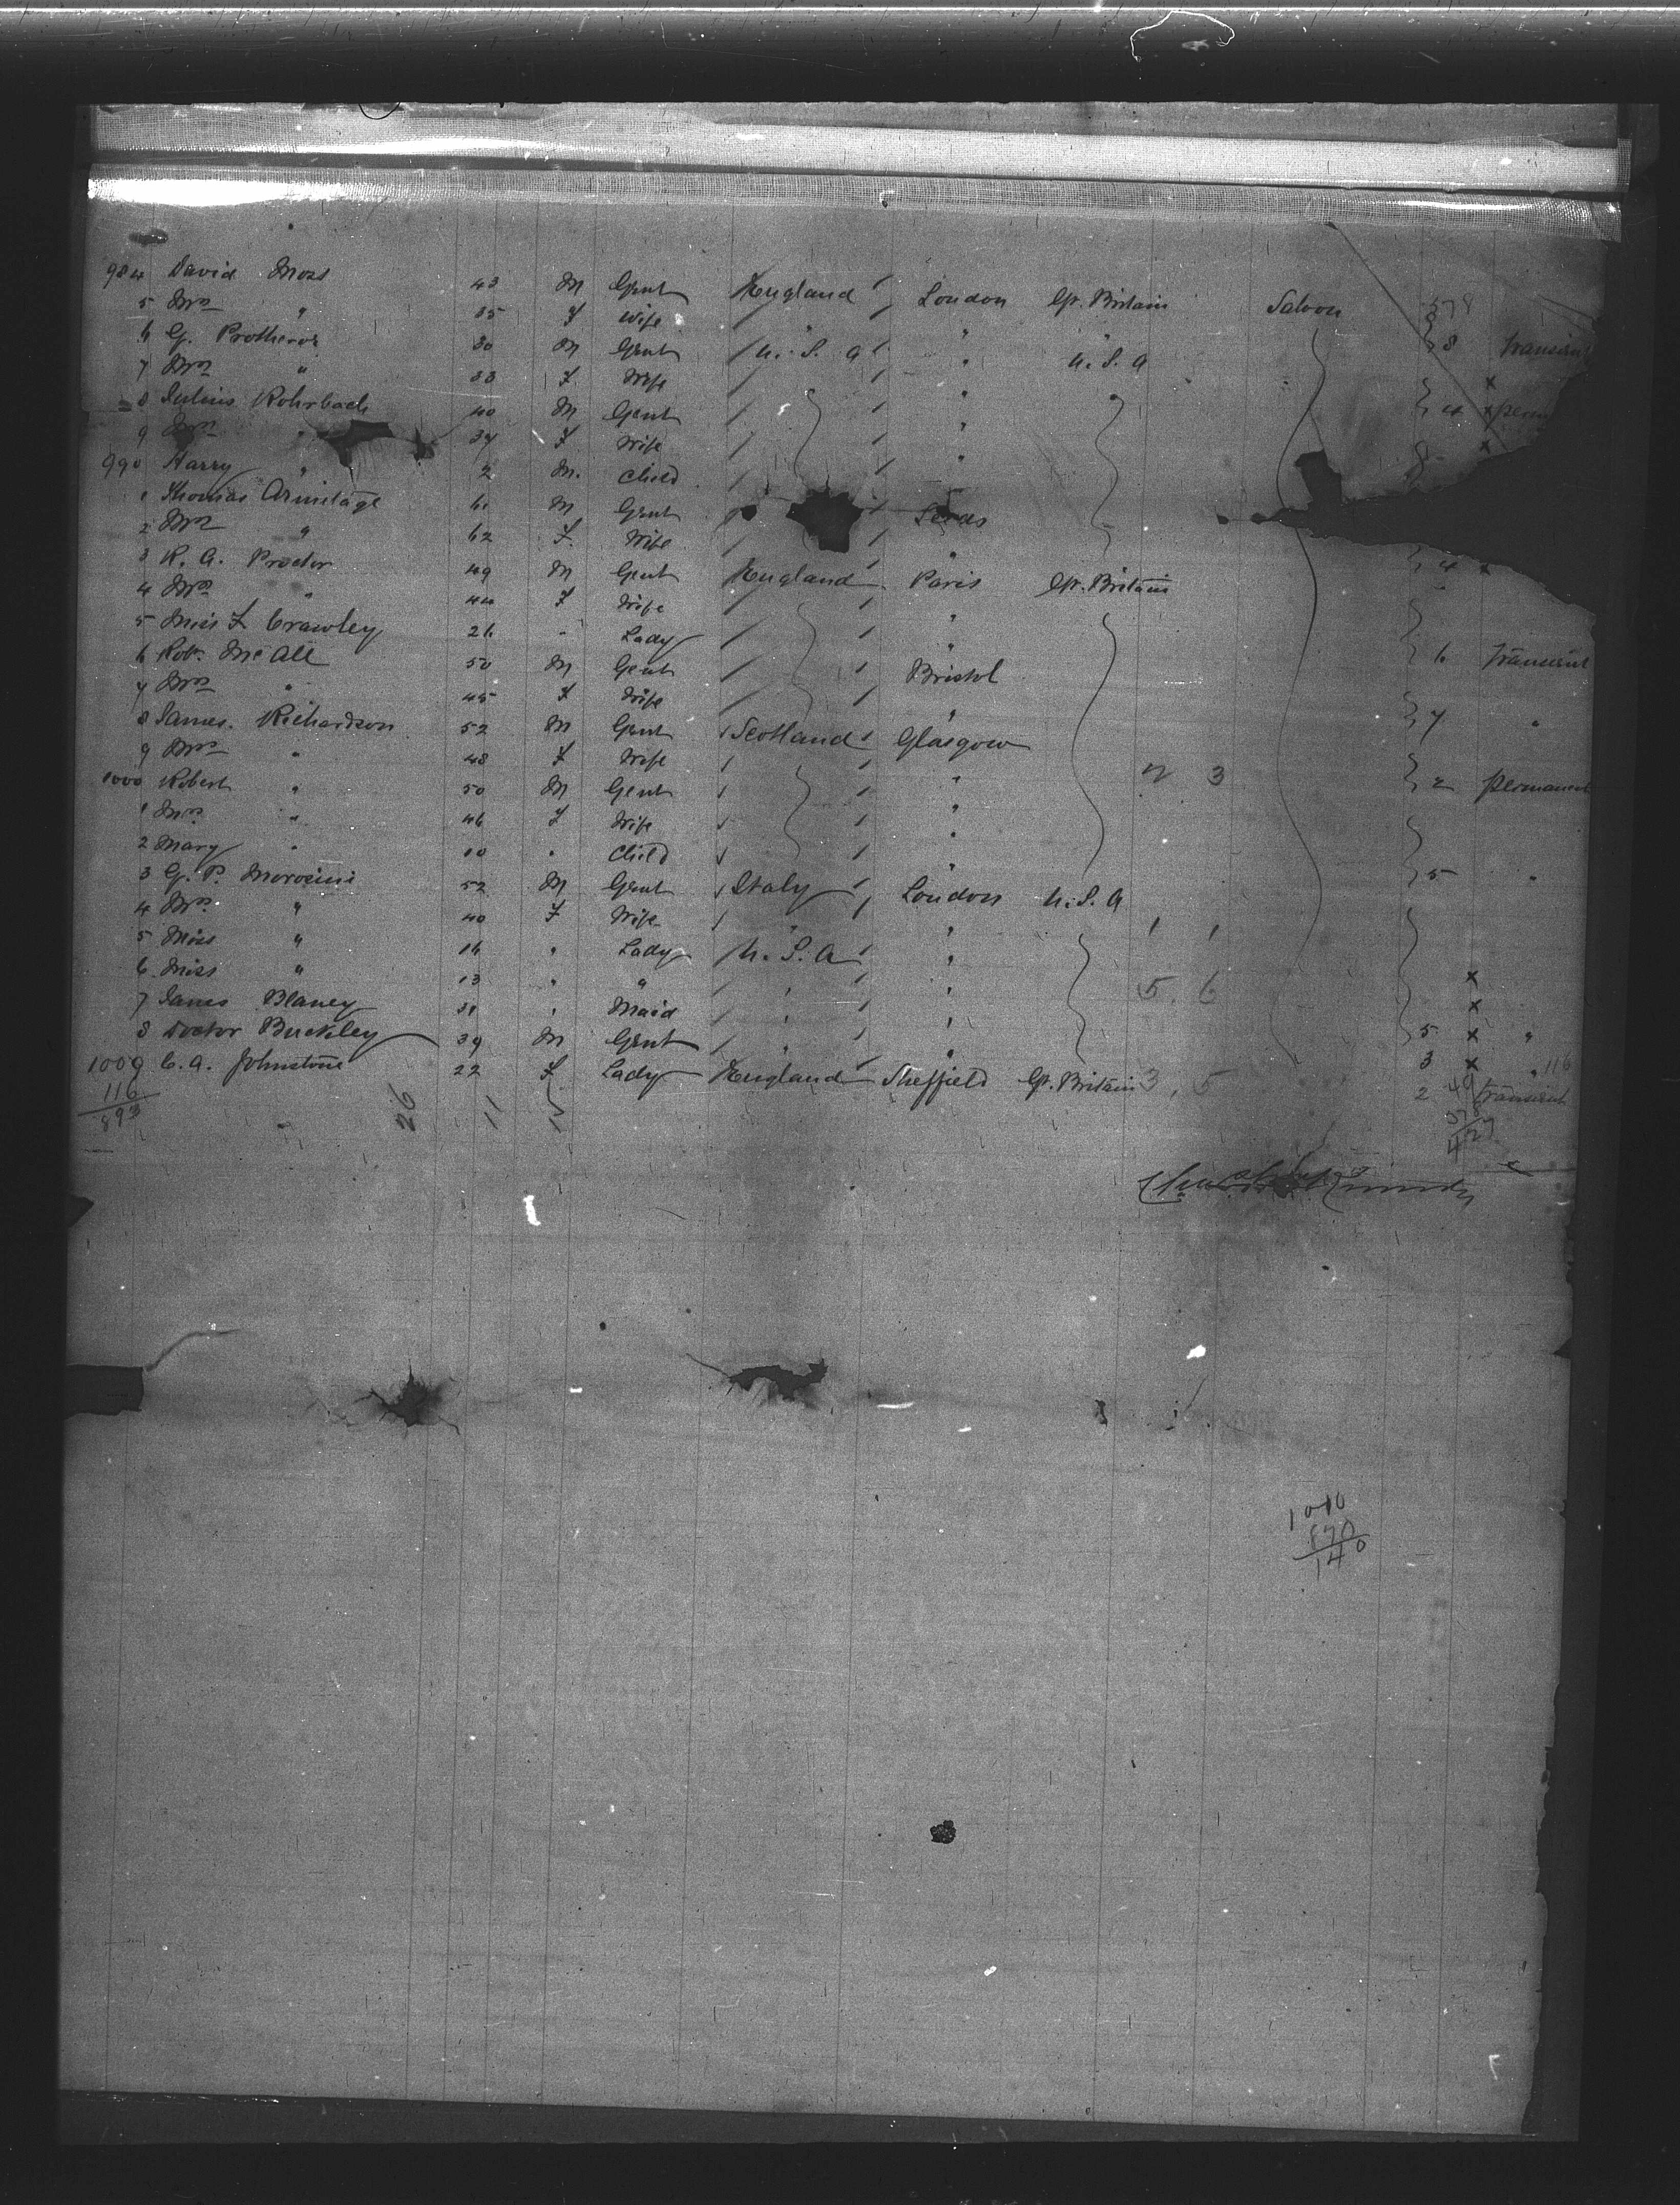 984 David Moss 43 M Gent England London Gt. Britain Saloon
5 Mrs " 35 F Wife " " "
6 G. Protheroe 30 M Gent U.S.A " U.S.A 8 Transient
7 Mrs " 33 F Wife "
8 Julius Rohrbach 40 M Gent " 4 x perm
9 Mrs " 34 F Wife " x
990 Harry " 2 M. Child
1 Thomas Armitage 61 M Gent Leeds
2 Mrs " 62 F. Wife "
3 R. A. Proctor 49 M Gent England Paris Gt. Britain 4 x
4 Mrs " 44 F Wife "
5 Miss F Crawley 26 " Lady "
6 Robt. McAll 50 M Gent Bristol 6 Transient
7 Mrs " 45 F Wife "
8 James. Richardson 52 M Gent Scotland Glasgow 7 "
9 Mrs " 48 F Wife " 2 3
1000 Robert " 50 M Gent " 2 permanent
1 Mrs " 46 F Wife "
2 Mary " 10 " Child "
3 G. P. Morosini 52 M Gent Italy London U.S.A 5 "
4 Mrs " 40 F Wife " " 1 1
5 Miss " 16 " Lady U.S.A "
6 Miss " 13 " " " " 5. 6 x
7 James Blaney 31 " Maid " " x
8 Doctor Buckley 39 M Gent " " 5 x "
1009 C. A. Johnstone 22 F. Lady England Sheffield Gt. Britain 3. 5 3 x " 116
116 2 49 Transient
893 26 11 15
1010
870
140